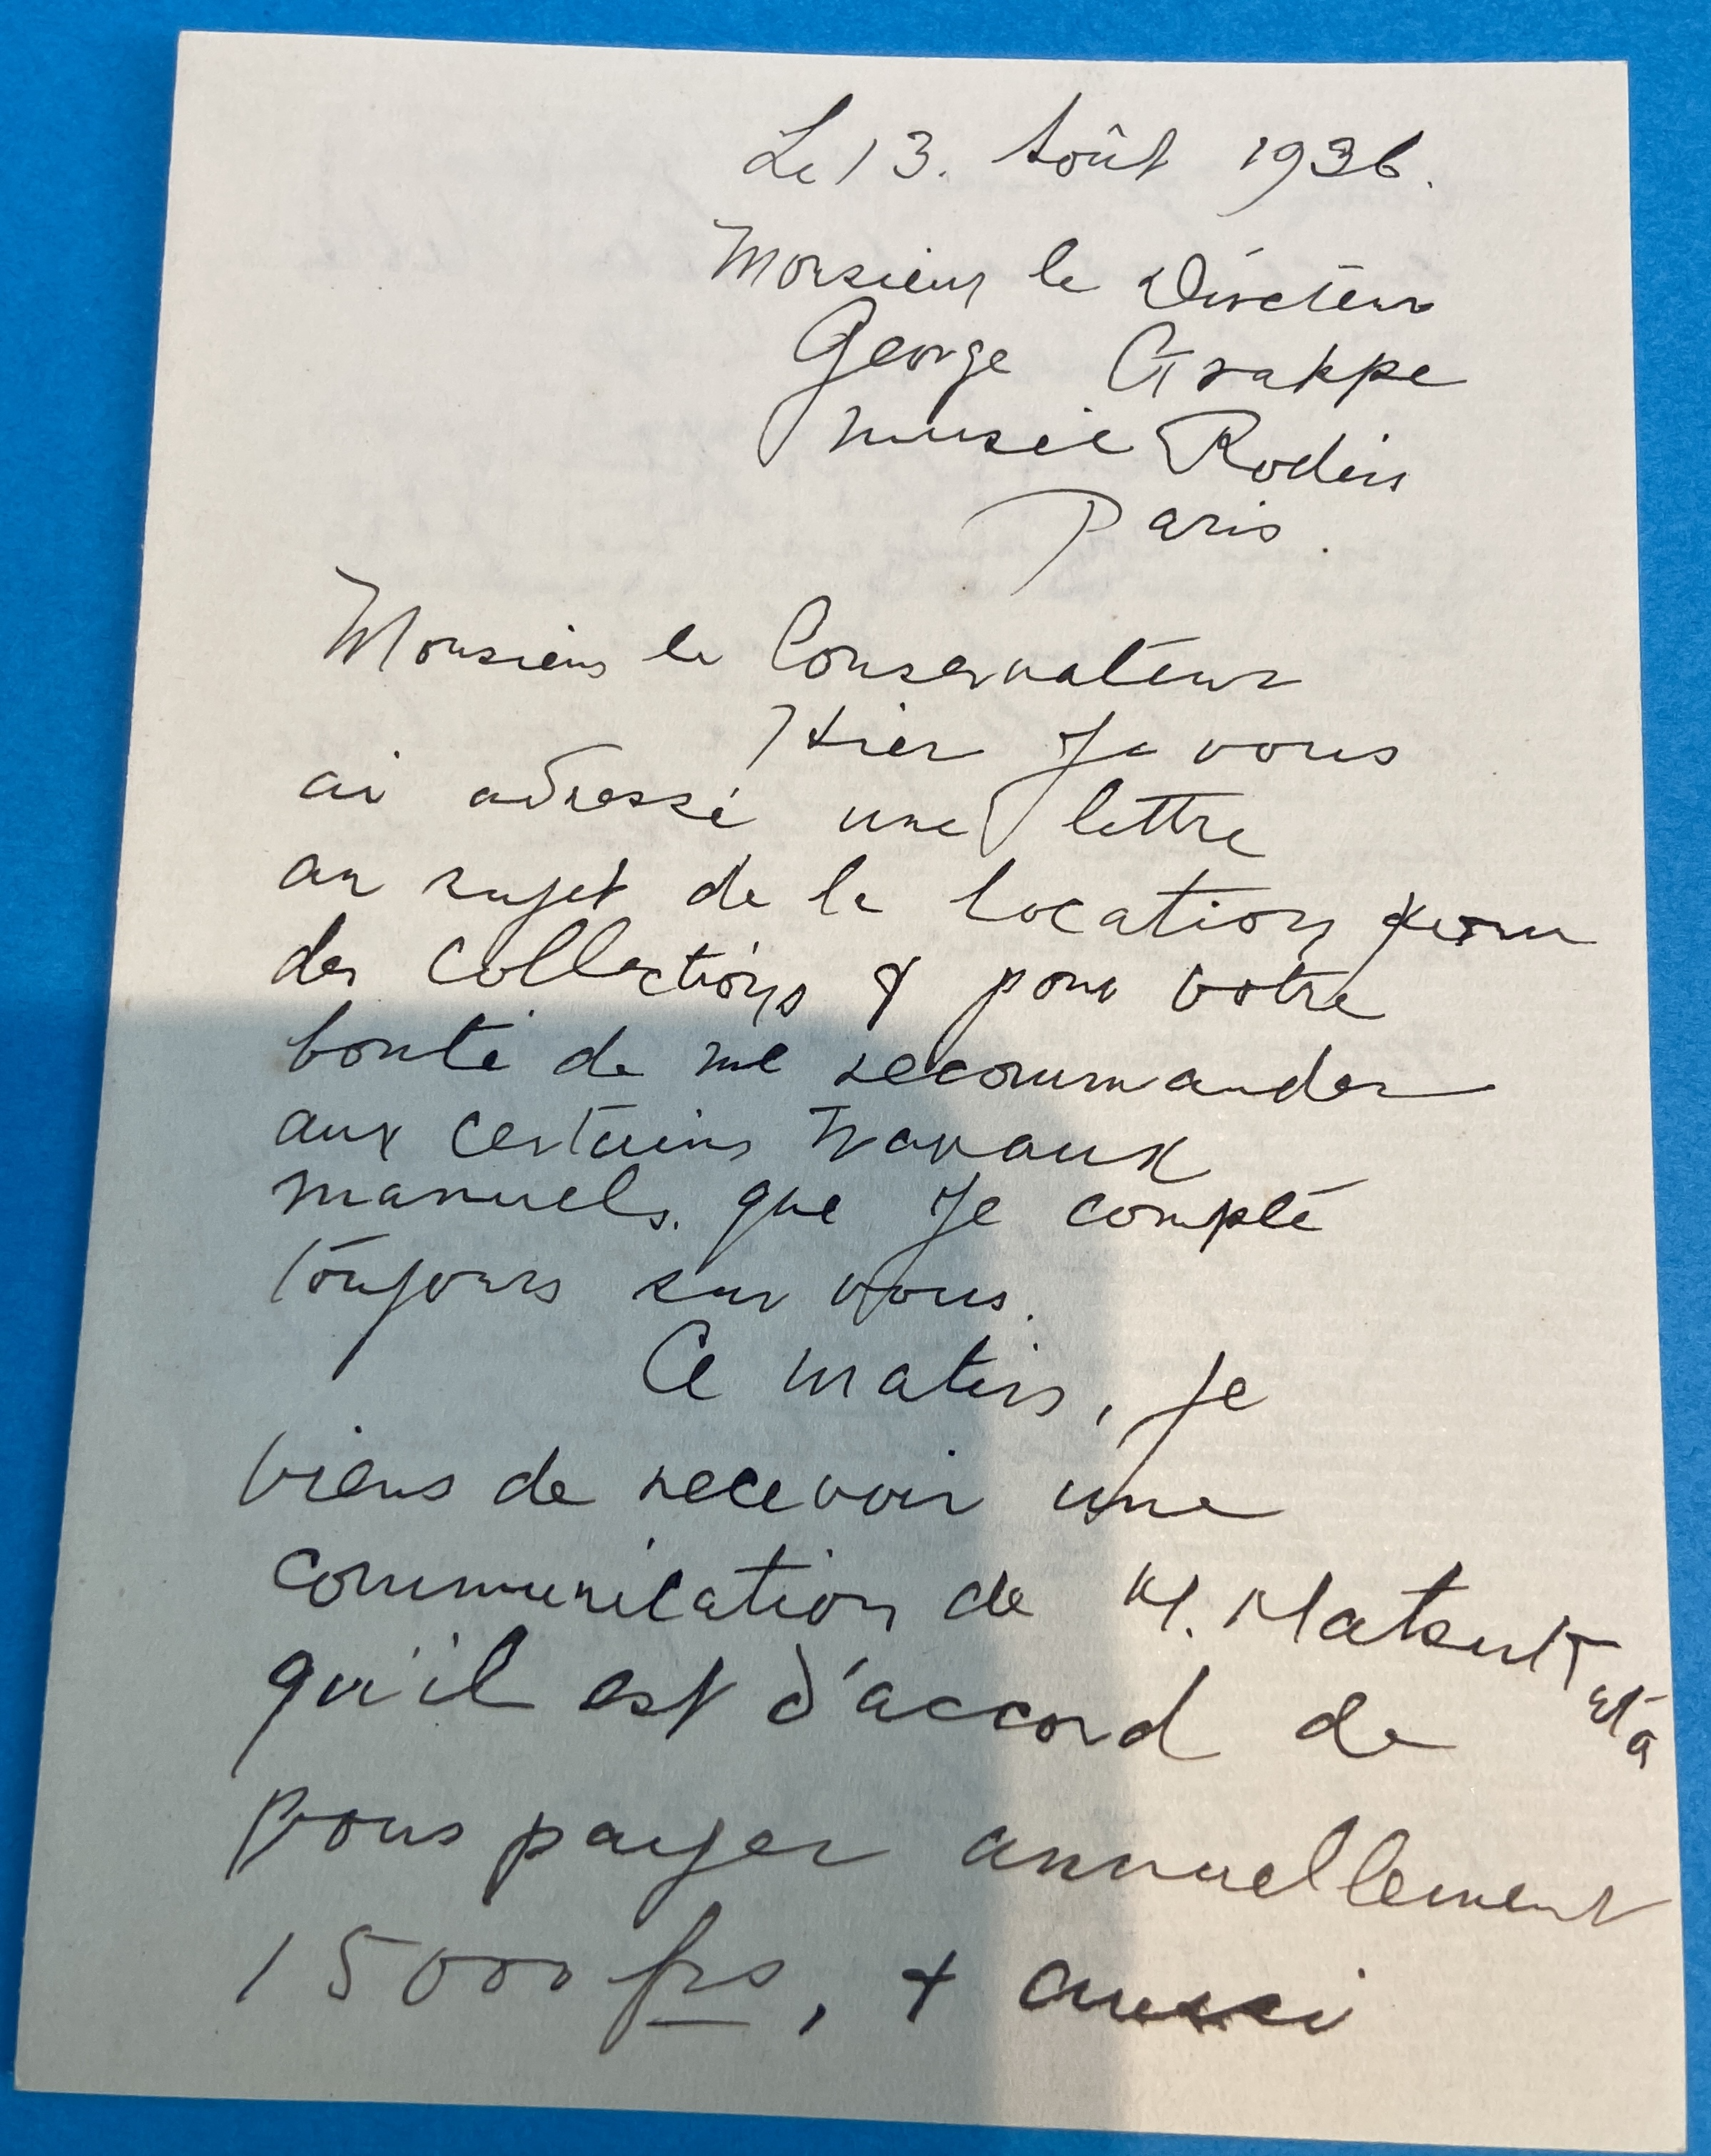 Le 13. Août 1936.
Monsieur le Directeur
George Grappe
Musée Rodin
Paris.
Monsieur le Conservateur
Hier Je vous
ai adressé une lettre
au sujet de la location pour
des collections & pour votre
bonté de me recommander
aux certains travaux
manuels. que Je compte
toujours sur vous.
Ce matin, Je
viens de recevoir une
communication de M. Matsukata
qu'il est d'accord de
vous payer annuellement
15000 frs, & aussi